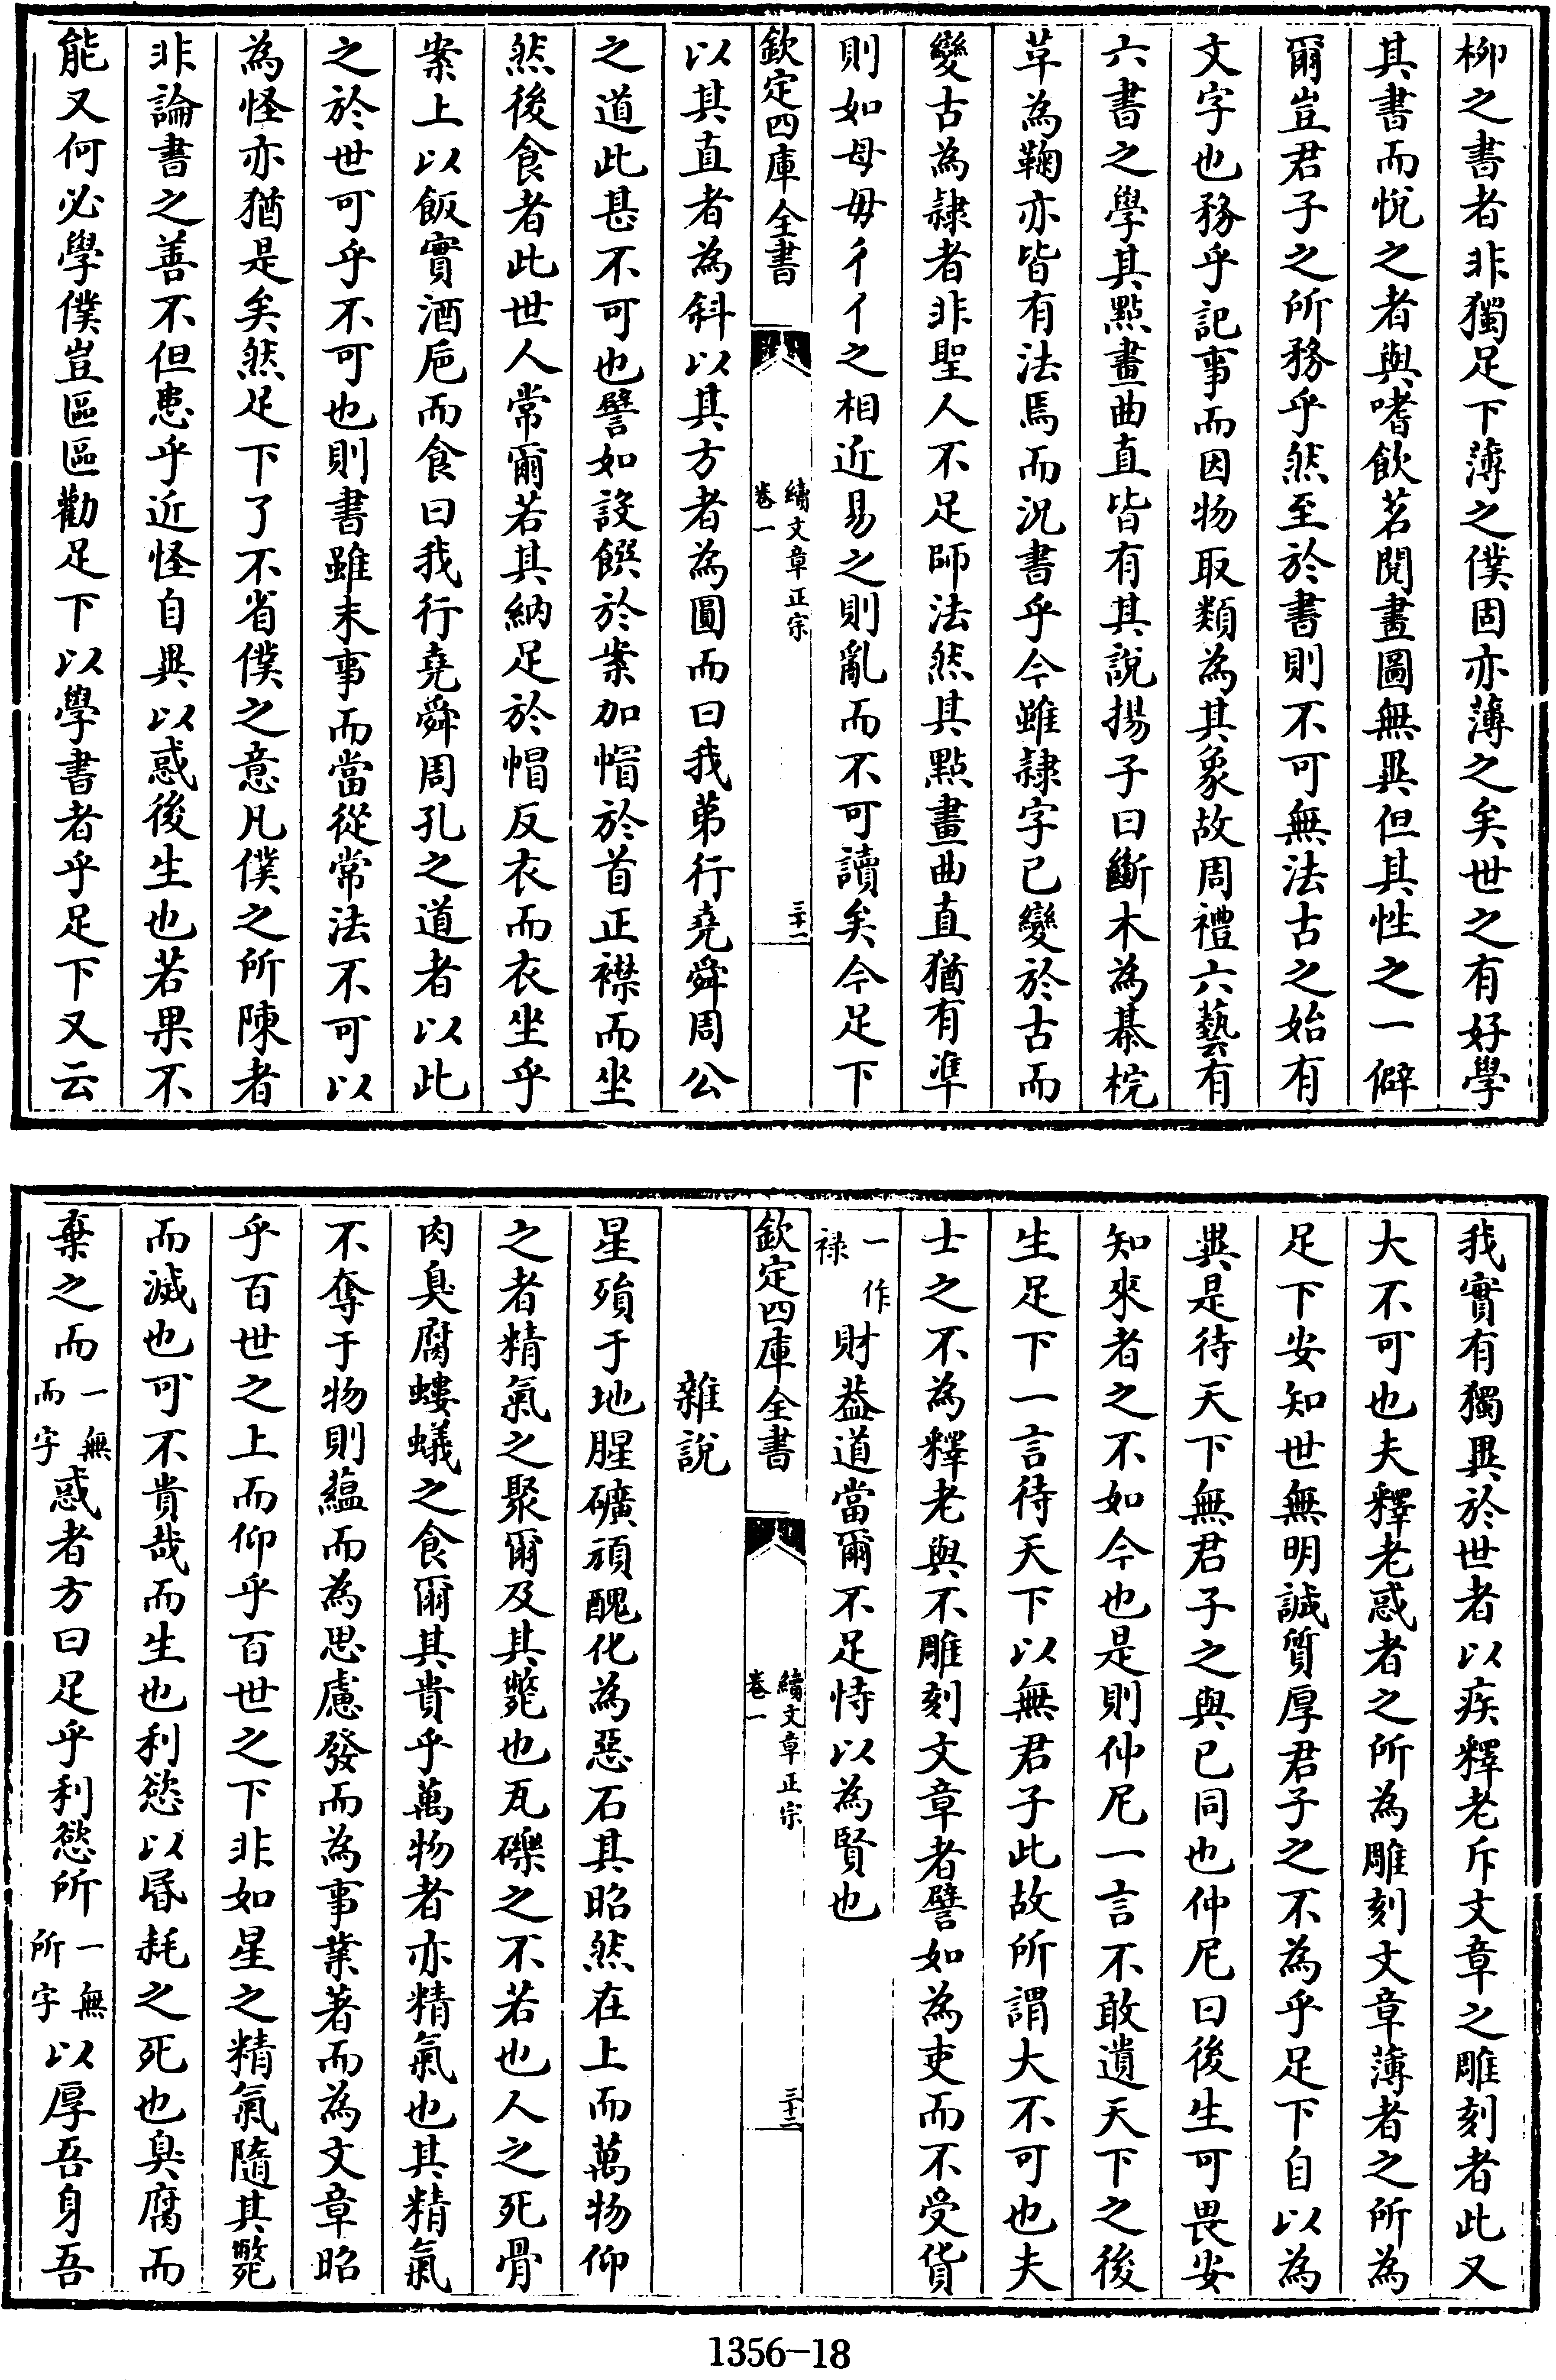 柳之書者非獨足下薄之僕固亦薄之矣世之有好學
其書而悅之者與嗜飲茗閱畫圖無異但其性之一僻
爾豈君子之所務乎然至於書則不可無法古之始有
文字也務乎記事而因物取類為其象故周禮六藝有
六書之學其點畫曲直皆有其說揚子曰斷木為棊梡
草為鞠亦皆有法焉而況書乎今雖隸字已變於古而
變古為隸者非聖人不足師法然其點畫曲直猶有準
則如母毋彳亻之相近易之則亂而不可讀矣今足下
欽定四庫全書
續文章正宗
卷一
三十一
以其直者為斜以其方者為圓而曰我第行堯舜周公
之道此甚不可也譬如設饌於案加帽於首正襟而坐
然後食者此世人常爾若其納足於帽反衣而衣坐乎
案上以飯實酒巵而食曰我行堯舜周孔之道者以此
之於世可乎不可也則書雖末事而當從常法不可以
為怪亦猶是矣然足下了不省僕之意凡僕之所陳者
非論書之善不但患乎近怪自異以惑後生也若果不
能又何必學僕豈區區勸足下以學書者乎足下又云
我實有獨異於世者以疾釋老斥文章之雕刻者此又
大不可也夫釋老惑者之所為雕刻文章薄者之所為
足下安知世無明誠質厚君子之不為乎足下自以為
異是待天下無君子之與已同也仲尼曰後生可畏安
知來者之不如今也是則仲尼一言不敢遺天下之後
生足下一言待天下以無君子此故所謂大不可也夫
士之不為釋老與不雕刻文章者譬如為吏而不受貨
一作祿財葢道當爾不足恃以為賢也
欽定四庫全書
續文章正宗
卷一
三十二
雜說
星殞于地腥礦頑醜化為惡石其昭然在上而萬物仰
之者精氣之聚爾及其斃也瓦礫之不若也人之死骨
肉臭腐螻蟻之食爾其貴乎萬物者亦精氣也其精氣
不奪于物則蘊而為思慮發而為事業著而為文章昭
乎百世之上而仰乎百世之下非如星之精氣隨其斃
而滅也可不貴哉而生也利慾以昏耗之死也臭腐而
棄之而一無而字惑者方曰足乎利慾所一無所字以厚吾身吾
1356-18